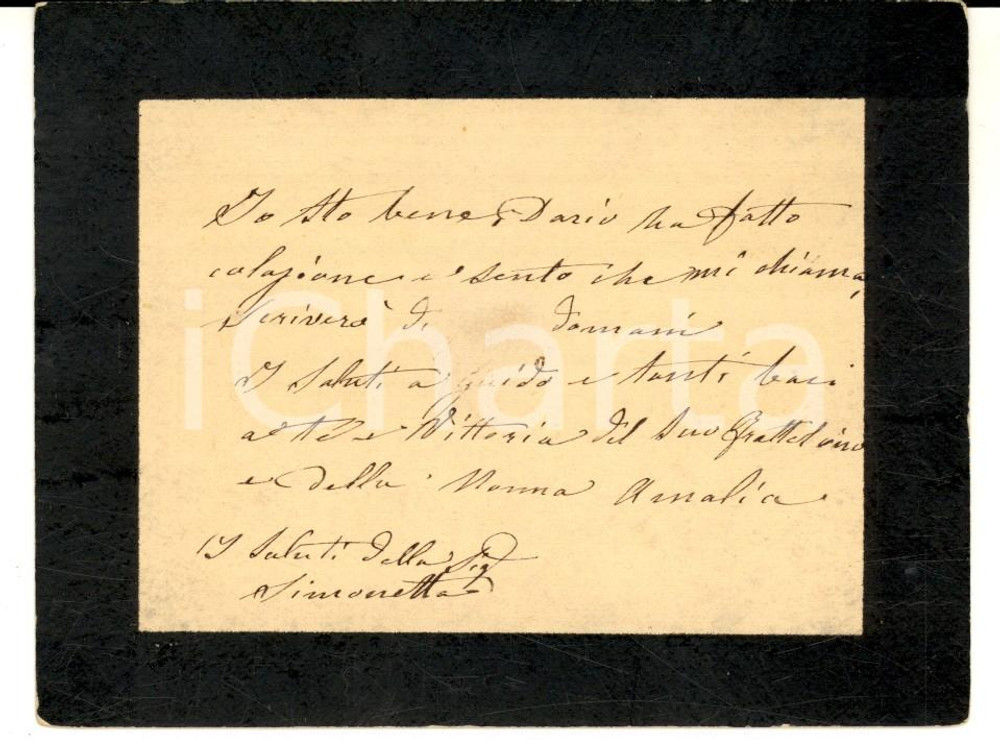 Io sto bene, Dario ha fatto
colazione e sento che mi chiama,
Scriverò di domani
I Saluti a Guido e tanti baci
a te e Vittoria del Suo frattelino
e della Nonna Amalia
I Saluti della Sig
Simonetta
iCharta